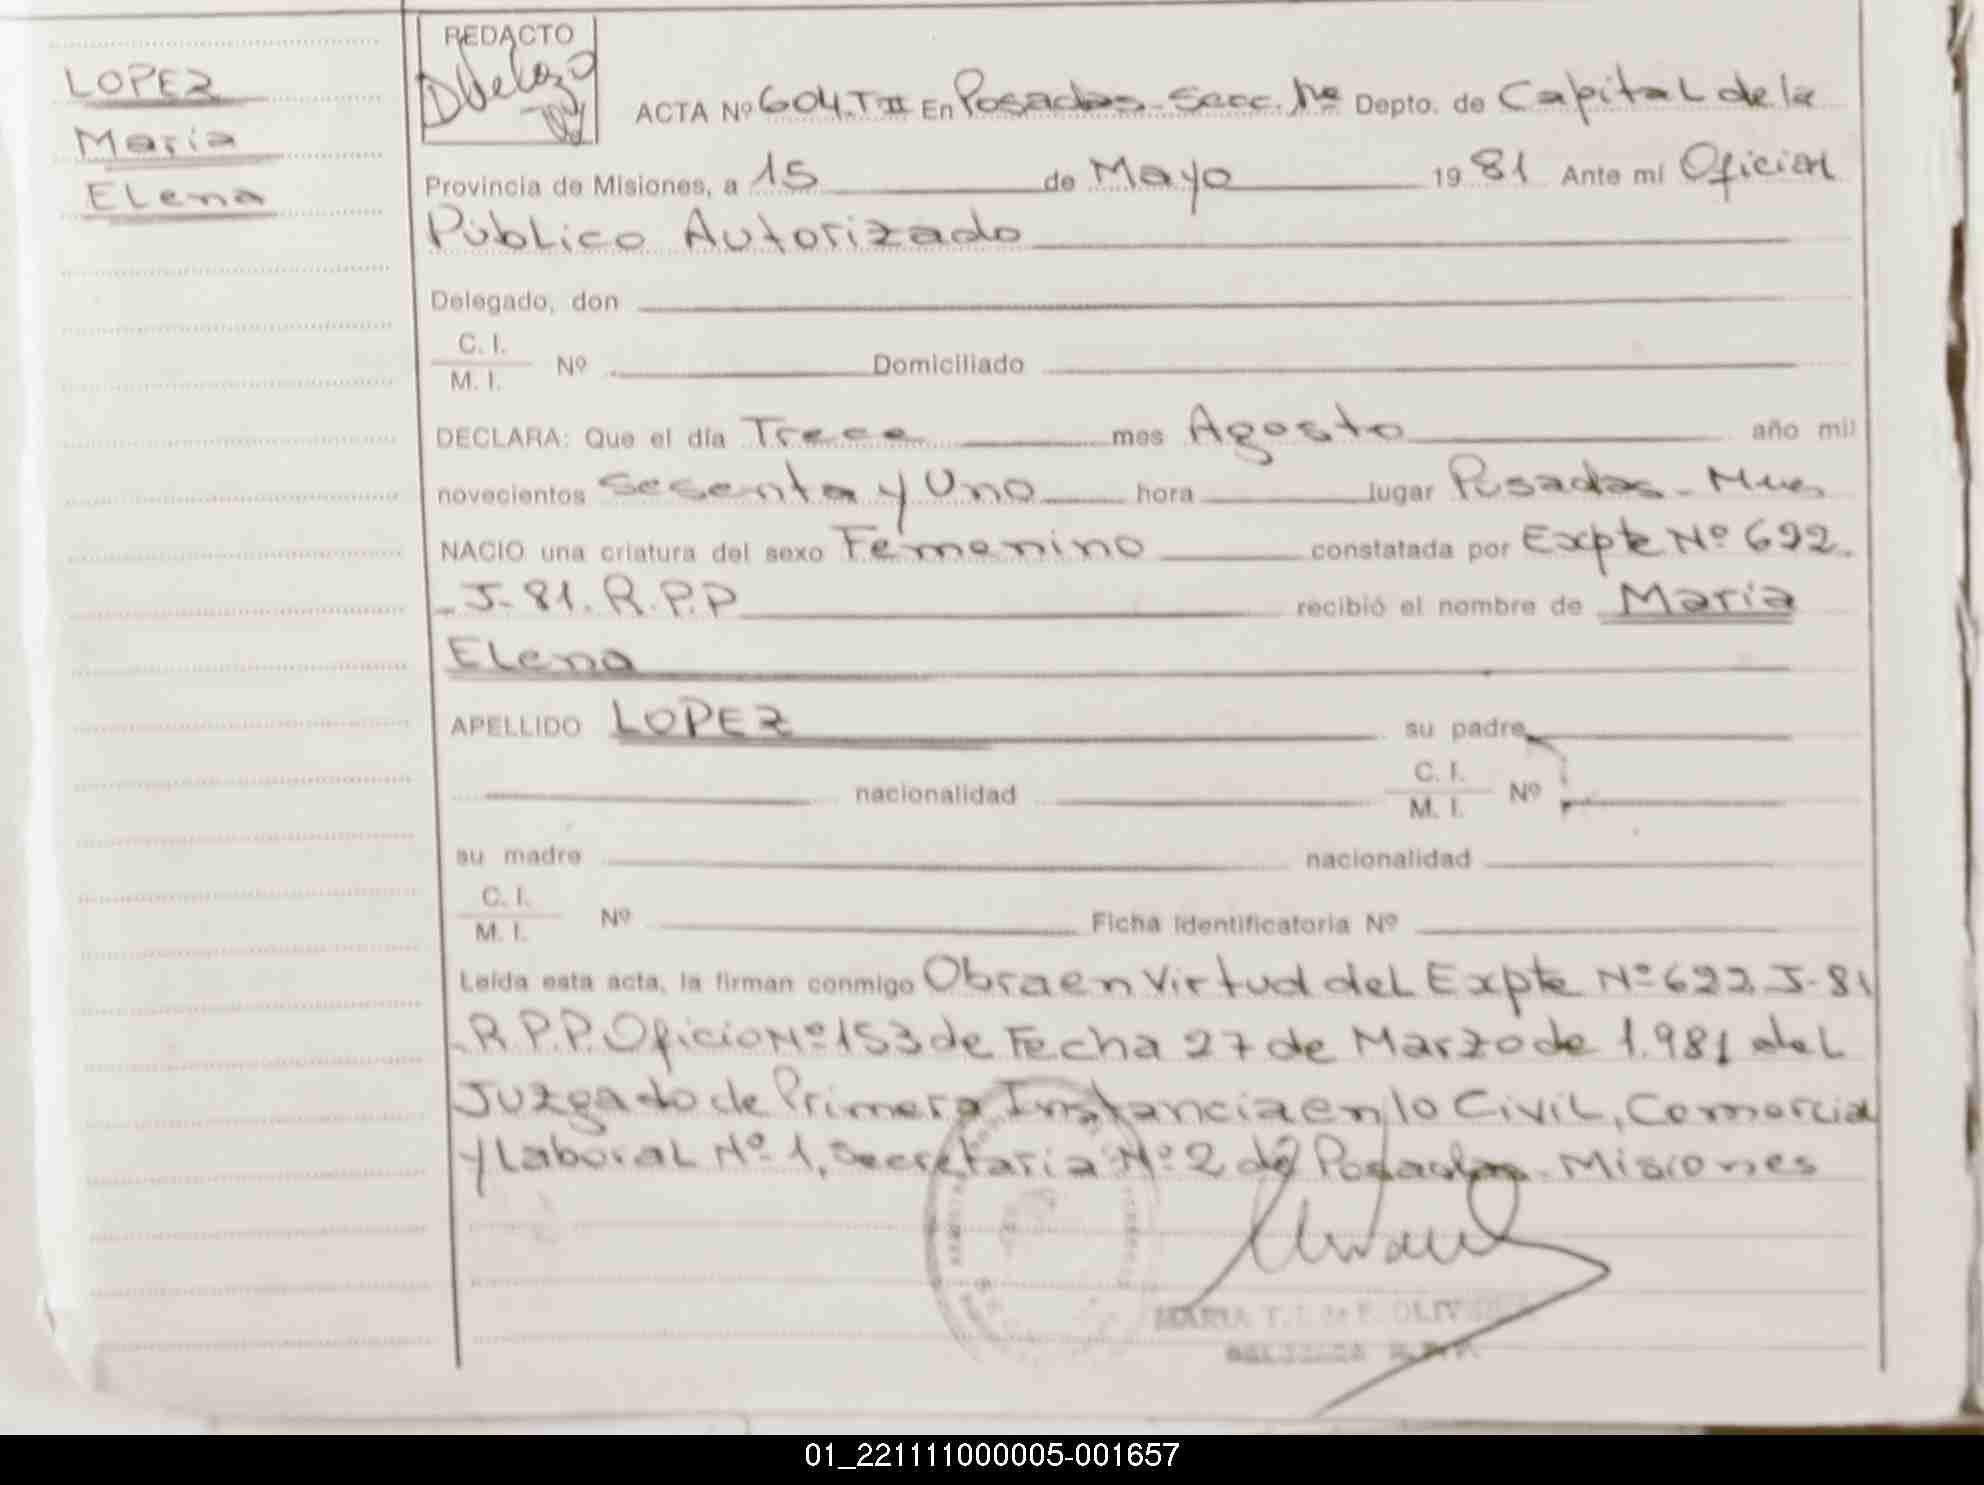 LOPEZ
Maria
Elena
REDACTO
ACTA Nº 604. T II En Posadas - Secc. 1ª Depto. de Capital de la
Provincia de Misiones, a 15 de Mayo 1981 Ante mi Oficial
Público Autorizado
Delegado, don
C. I.
M. I. Nº Domiciliado
DECLARA: Que el día Trece mes Agosto año mil
novecientos sesenta y Uno hora lugar Posadas - Mnes
NACIO una criatura del sexo Femenino constatada por Expte Nº 622.
- J- 81. R.P.P recibió el nombre de Maria
Elena
APELLIDO LOPEZ su padre
nacionalidad C. I.
M. I. Nº
su madre nacionalidad
C. I.
M. I. Nº Ficha Identificatoria Nº
Leída esta acta, la firman conmigo Obra en Virtud del Expte Nº 622. J-81
-R.P.P. Oficio Nº 153 de Fecha 27 de Marzo de 1.981 del
Juzgado de Primera Instancia en lo Civil, Comercial
y Laboral Nº 1, Secretaria Nº 2 de Posadas - Misiones
MARIA T. OLIVEIRA
R.P.P.
01_221111000005-001657